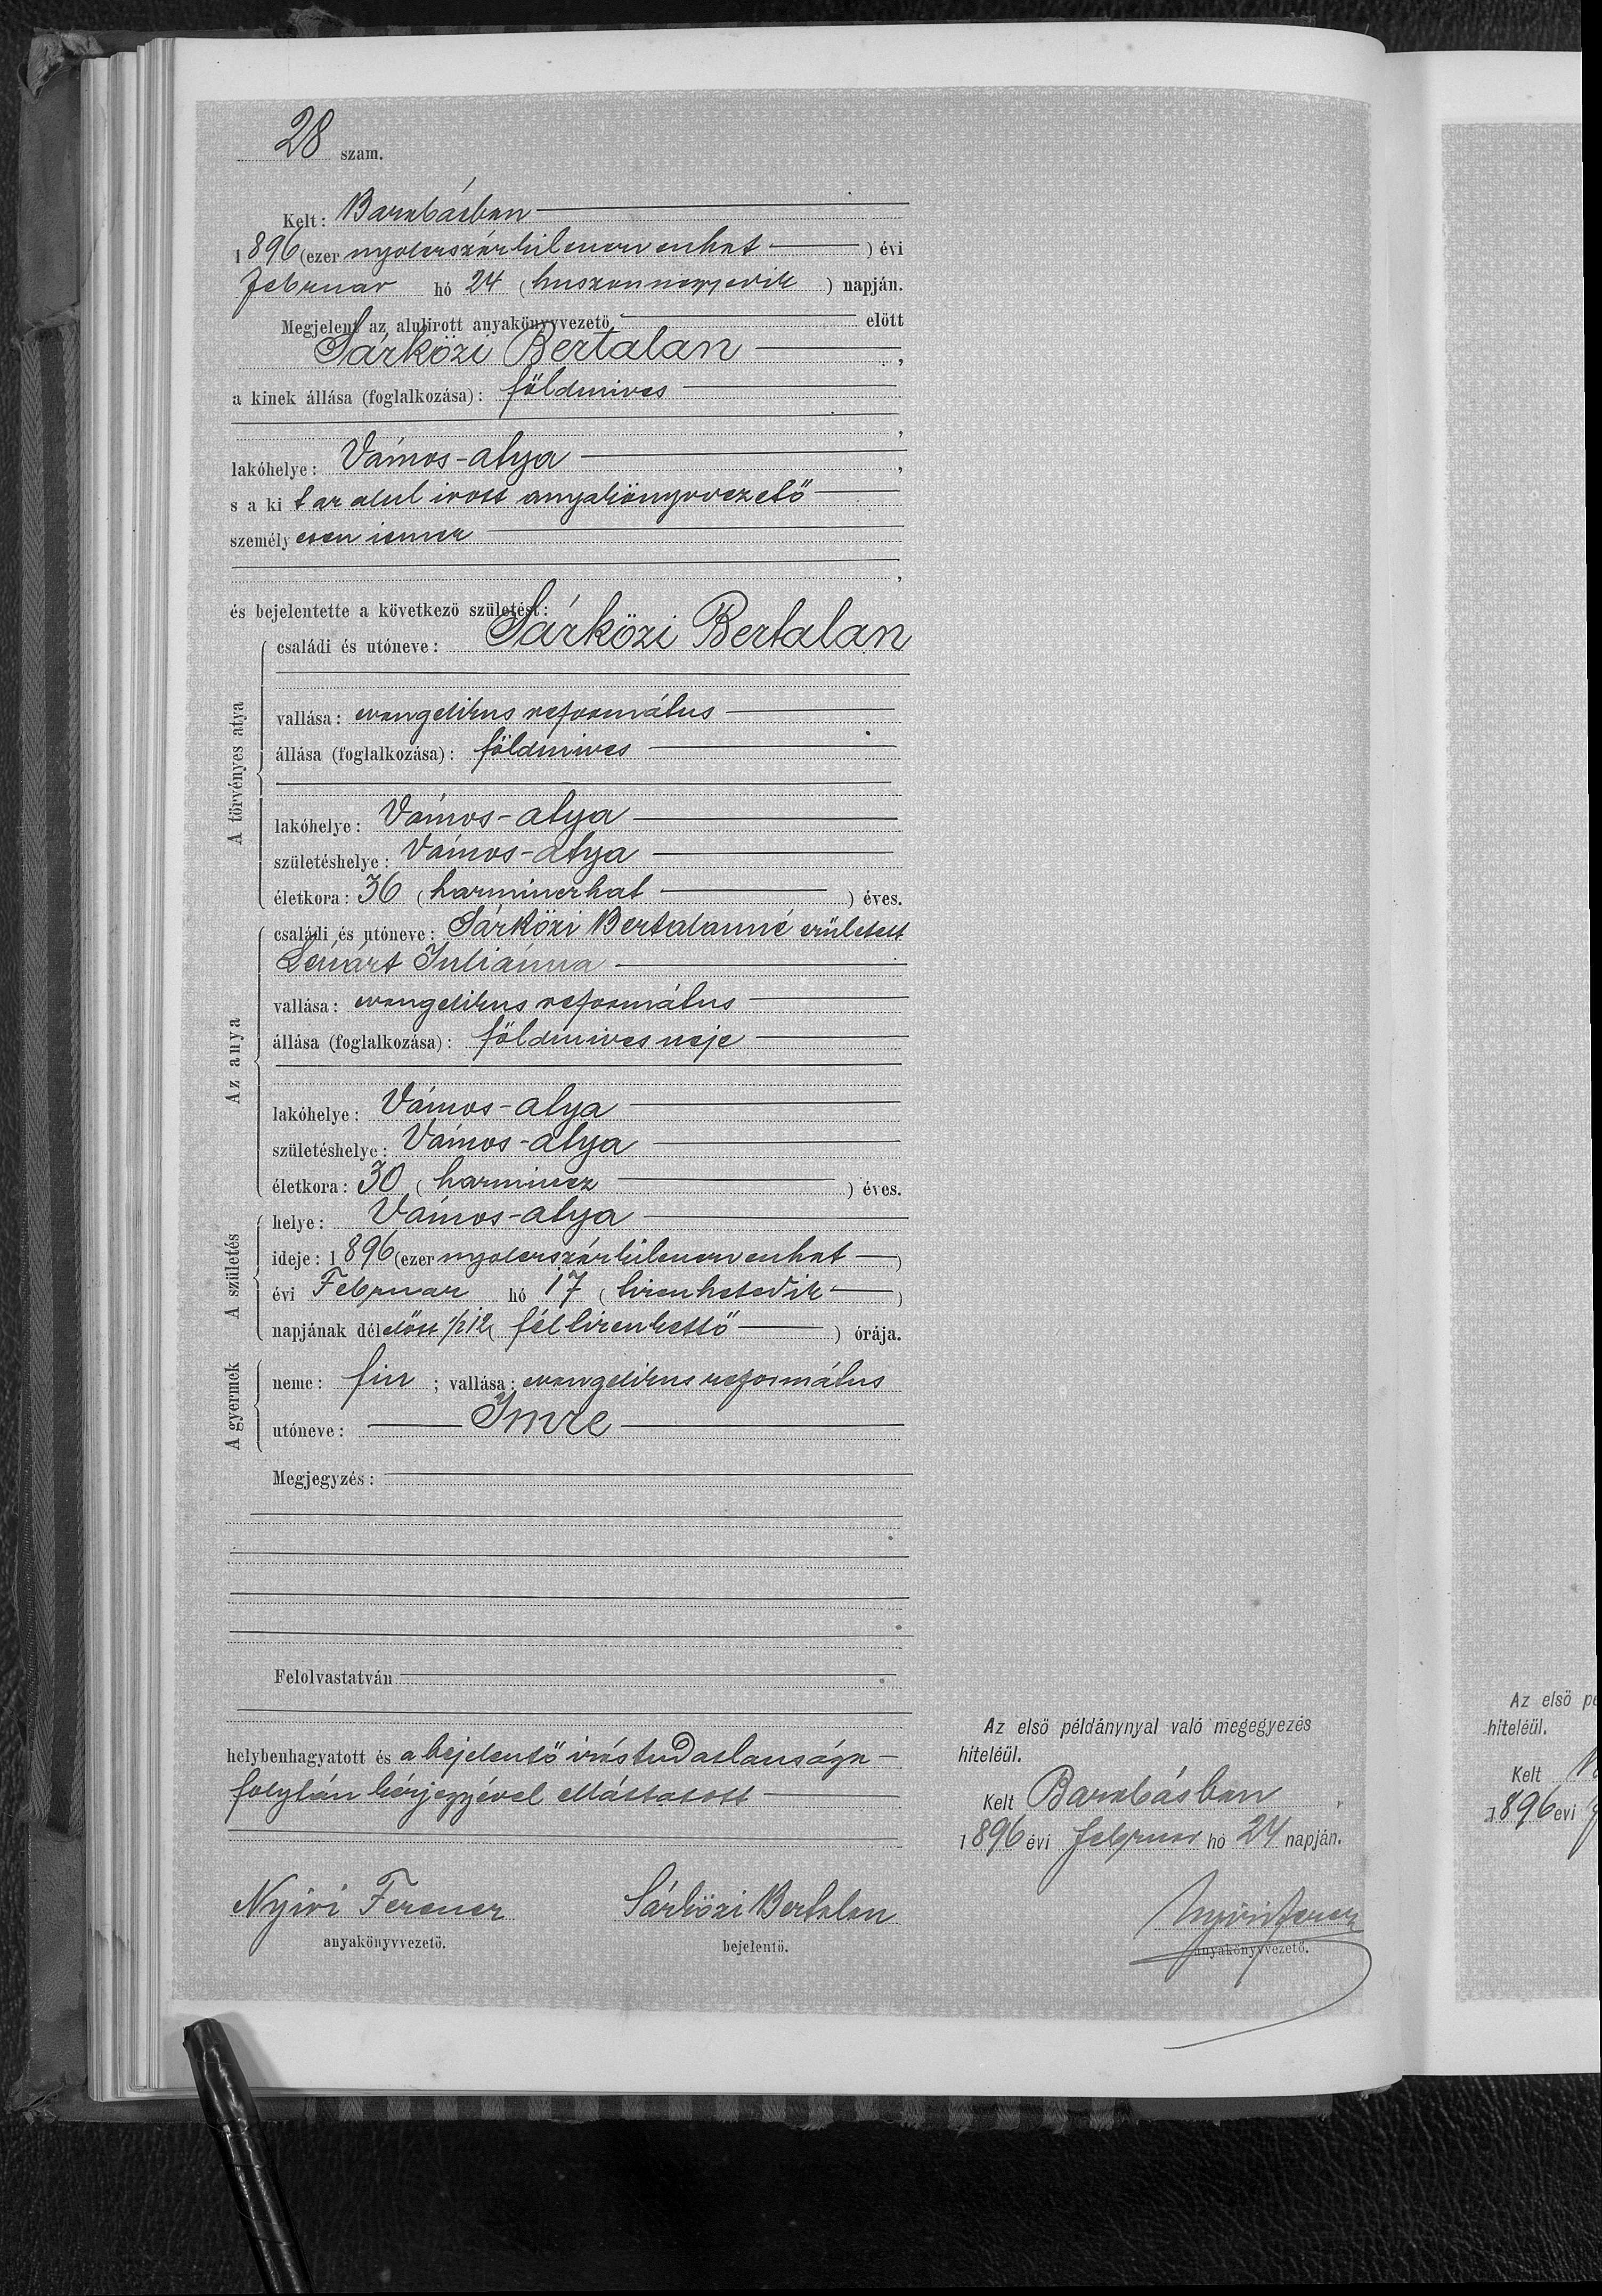 28 szám.
Kelt: Barabásban
1896 (ezer nyolczszázkilenczvenhat ) évi
Februar hó 24 (huszonnegyedik ) napján.
Megjelent az alulirott anyakönyvvezetö elött
Sárközi Bertalan ,
a kinek állása (foglalkozása): földmives
,
lakóhelye: Vámos-atya ,
s a kit az alul irott anyakönyvvezető
személyesen ismer
,
és bejelentette a következö születést:
A törvényes atya
családi és utóneve: Sárközi Bertalan
vallása: evangelikus református
állása (foglalkozása): földmives
lakóhelye: Vámos-atya
születéshelye: Vámos-atya
életkora: 36 (harminczhat ) éves.
Az anya
családi és utóneve: Sárközi Bertalanné született
Lénárt Juliánna
vallása: evangelikus református
állása (foglalkozása): földmives neje
lakóhelye: Vámos-atya
születéshelye: Vámos-atya
életkora: 30 (harmincz ) éves.
A születés
helye: Vámos-atya
ideje: 1896 (ezer nyolczszázkilenczvenhat )
évi Februar hó 17 (tizenhetedik )
napjának délelőtt 1/2 12 (fél tizenkettő ) órája.
A gyermek
neme: fiu ; vallása: evangelikus református
utóneve: Imre
Megjegyzés:
Felolvastatván
helybenhagyatott és a bejelentő irástudatlansága
folytán kézjegyével elláttatott
Nyiri Ferencz Sárközi Bertalan
anyakönyvvezetö. bejelentö.
Az elsö példánynyal való megegyezés
hiteléül.
Kelt Barabásban
1896 évi Februar hó 24 napján.
Nyiri Ferencz
anyakönyvvezetö.
Az elsö
hiteléül.
Kelt
1896 évi